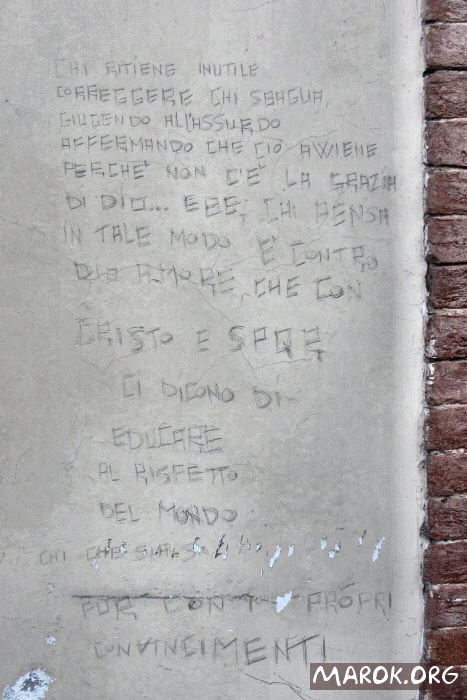 CHI RITIENE INUTILE
CORREGGERE CHI SBAGLIA,
GIUGENDO ALL'ASSURDO
AFFERMANDO CHE CIÒ AVVIENE
PERCHE' NON C'E' LA GRAZIA
DI DIO... EBE, CHI PENSA
IN TALE MODO E' CONTRO
DIO AMORE, CHE CON
CRISTO E SPQR
CI DICONO DI
EDUCARE
AL RISPETTO
DEL MONDO
CHI CHE SIA
PUR CON I PROPRI
CONVINCIMENTI
MAROK.ORG